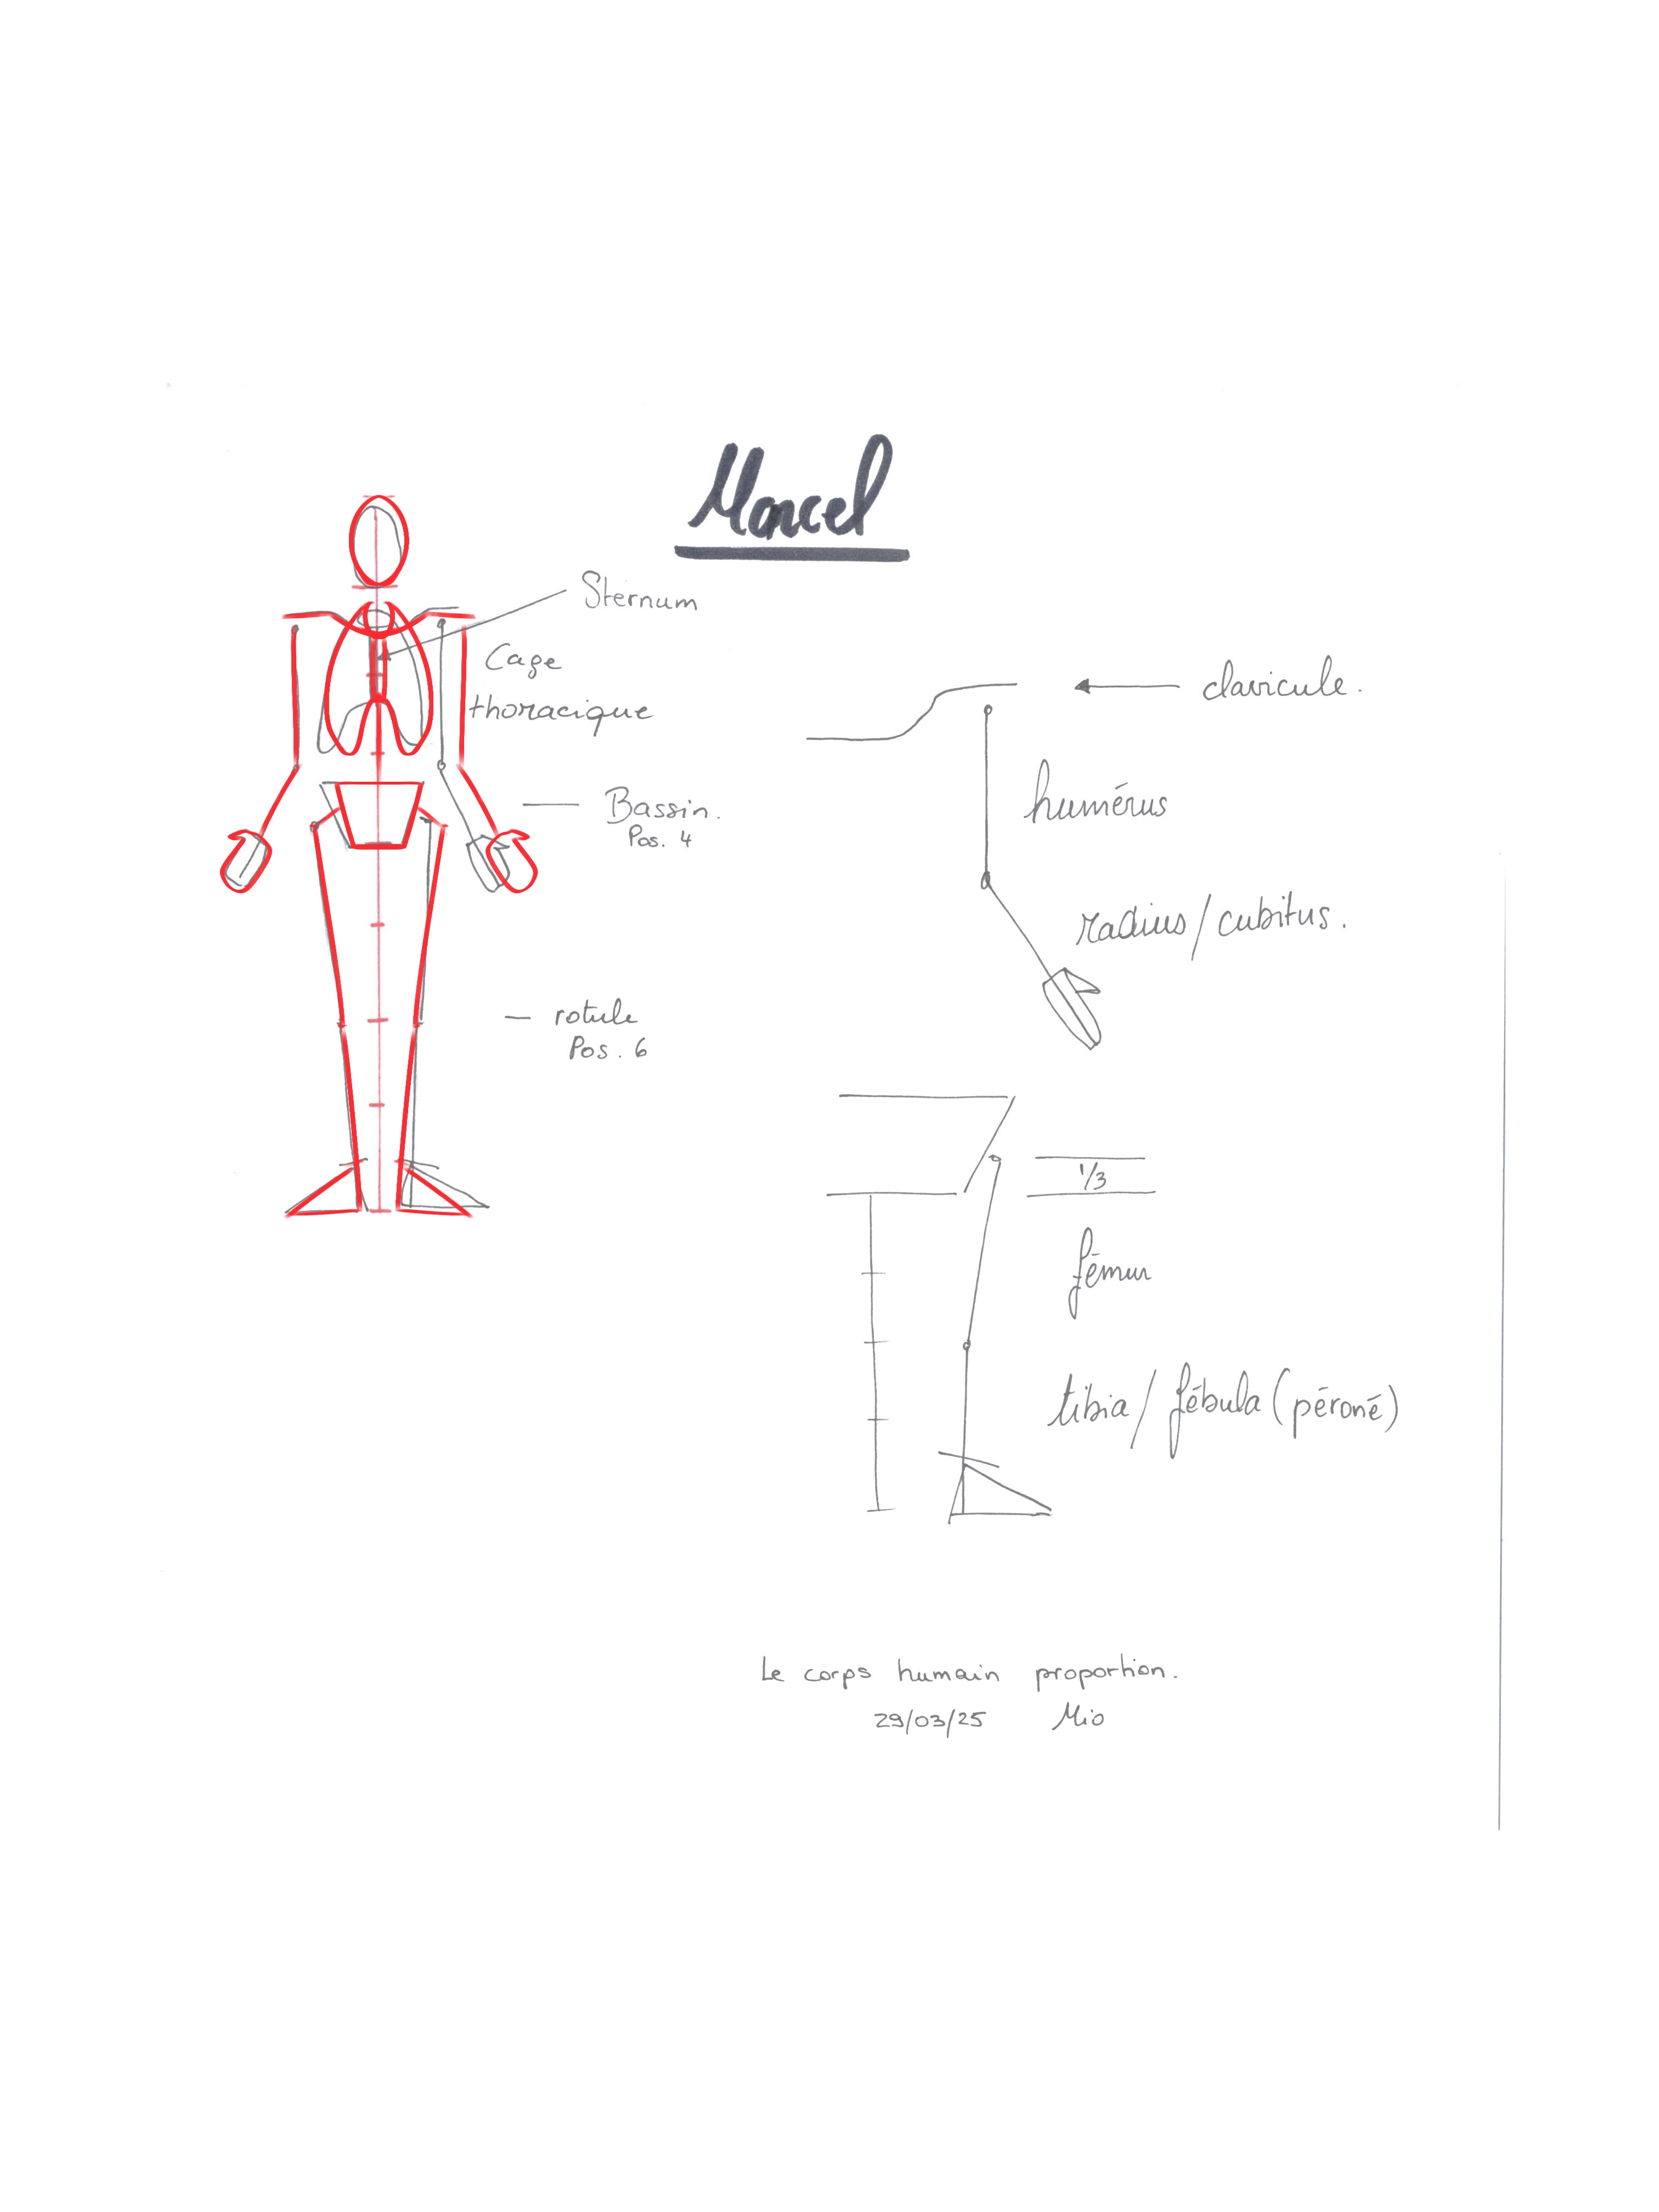 Marcel
Sternum
Cage
thoracique
Bassin.
Pos. 4
rotule
Pos. 6
clavicule.
humérus
radius/cubitus.
1/3
fémur
tibia/fébula (péroné)
Le corps humain proportion.
29/03/25 Mio